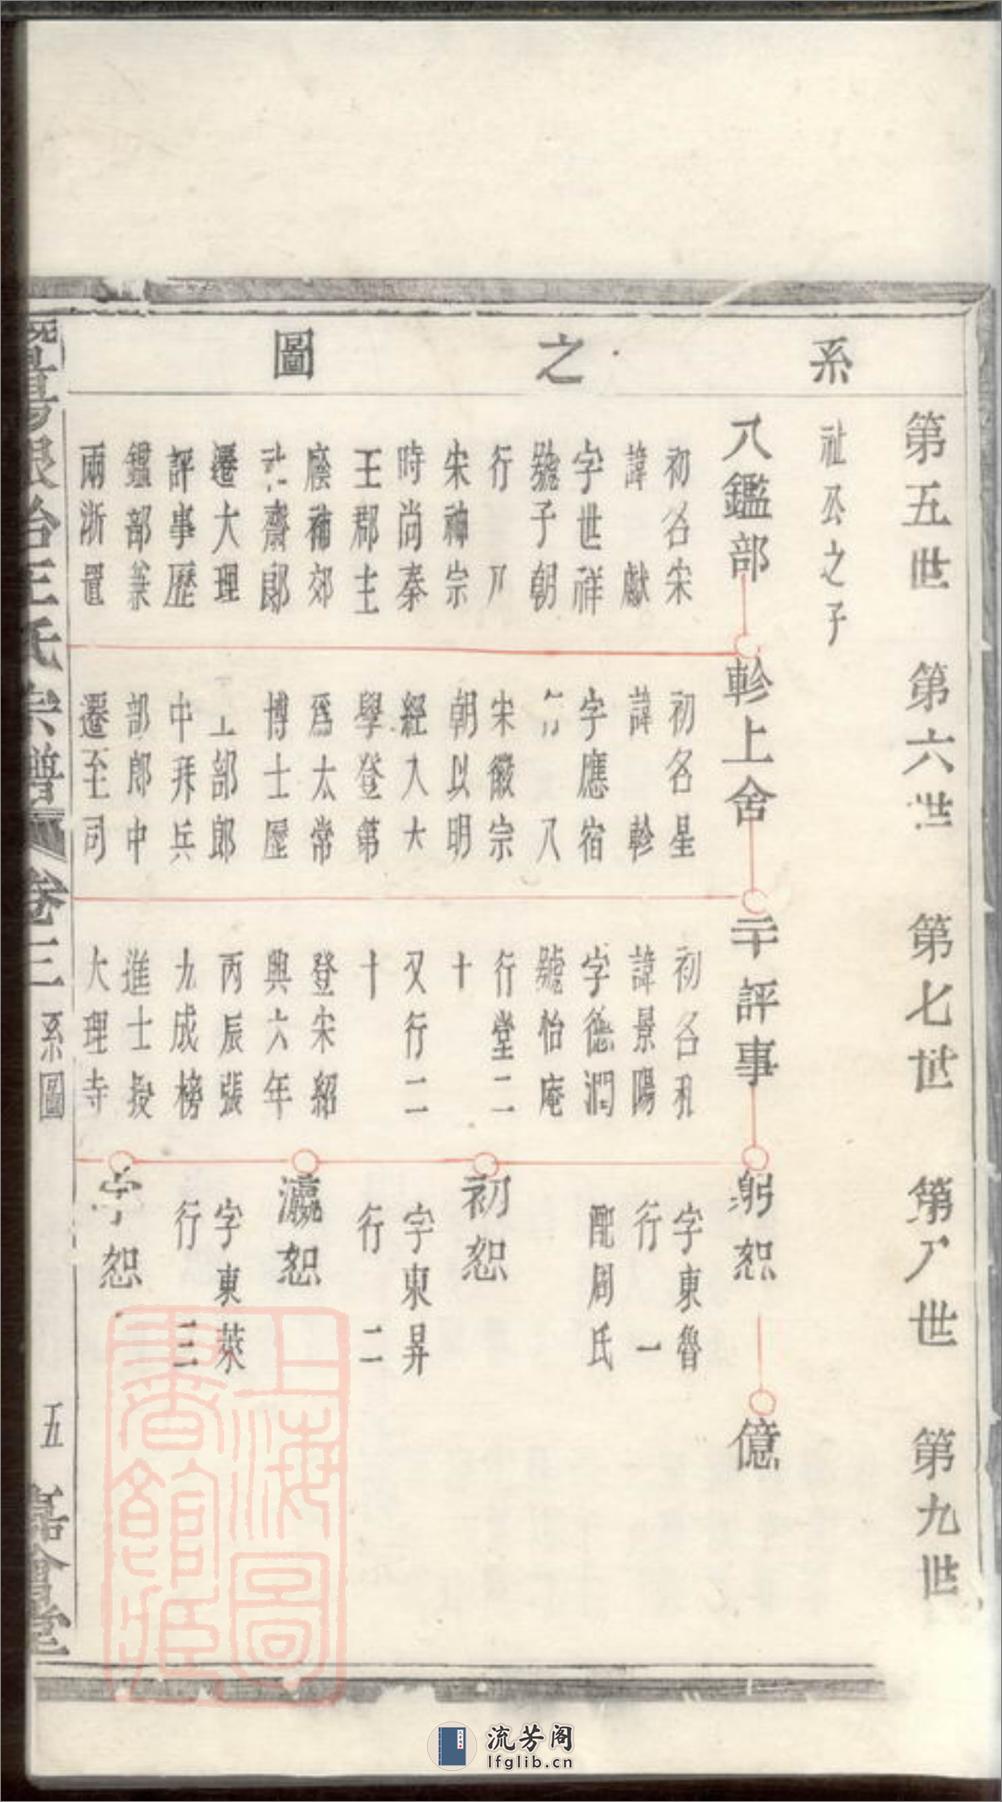 系之圖
第五世
第六世
第七世
第八世
第九世
祉公之子
八鑑部
初名宋
諱獻
字世祥
號子朝
行八
宋神宗
時尚秦
王郡主
廕補郊
社齋郎
遷大理
評事歷
鑑部兼
兩浙置
軫上舍
初名星
諱軫
字應宿
行八
宋徽宗
朝以明
經入大
學登第
爲太常
博士歷
工部郎
中拜兵
部郎中
遷至司
二十評事
初名孔
諱景陽
字德潤
號怡庵
行堂二
十
又行二
十
登宋紹
興六年
丙辰張
九成榜
進士授
大理寺
躬恕
字東魯
行一
配周氏
初恕
字東昇
行二
瀛恕
字東萊
行三
恕
億
暨陽
王氏宗譜
卷三
系圖
五
嘉會堂
上海圖書館藏
流芳阁
lfglib.cn